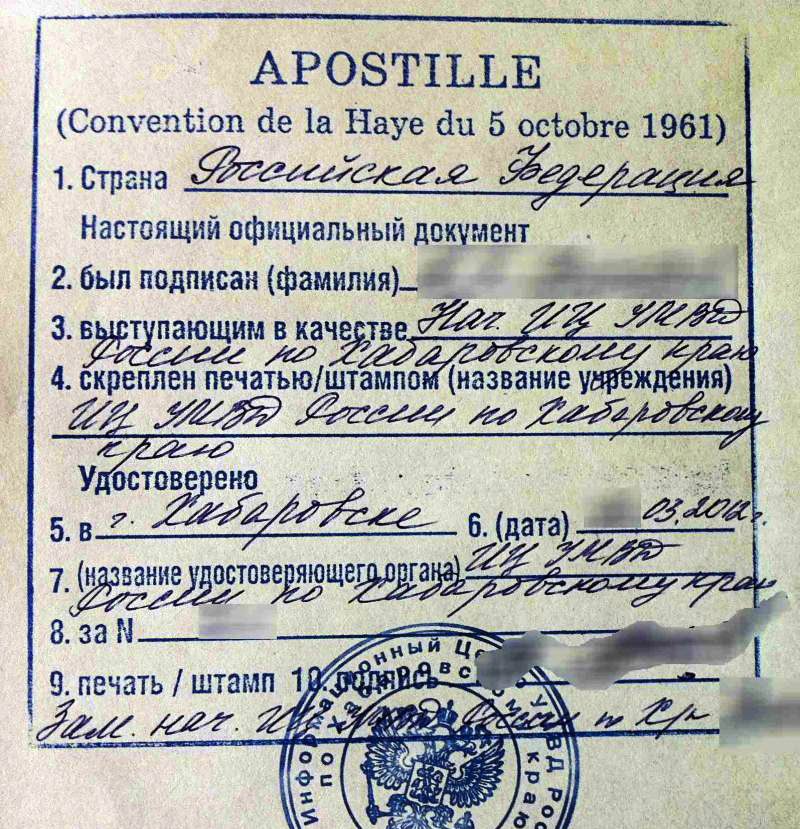 APOSTILLE
(Convention de la Haye du 5 octobre 1961)
1. Страна Российская Федерация
Настоящий официальный документ
2. был подписан (фамилия)
3. выступающим в качестве Нач. ИЦ УМВД
России по Хабаровскому краю
4. скреплен печатью/штампом (название учреждения)
ИЦ УМВД России по Хабаровскому
краю
Удостоверено
5. в г. Хабаровске 6. (дата) 03.2012г.
7. (название удостоверяющего органа) ИЦ УМВД
России по Хабаровскому краю
8. за N
9. печать / штамп 10. подпись
Зам. нач. ИЦ УМВД России по Хкр
Информационный Це УВД Рос
по Хабаровском краю